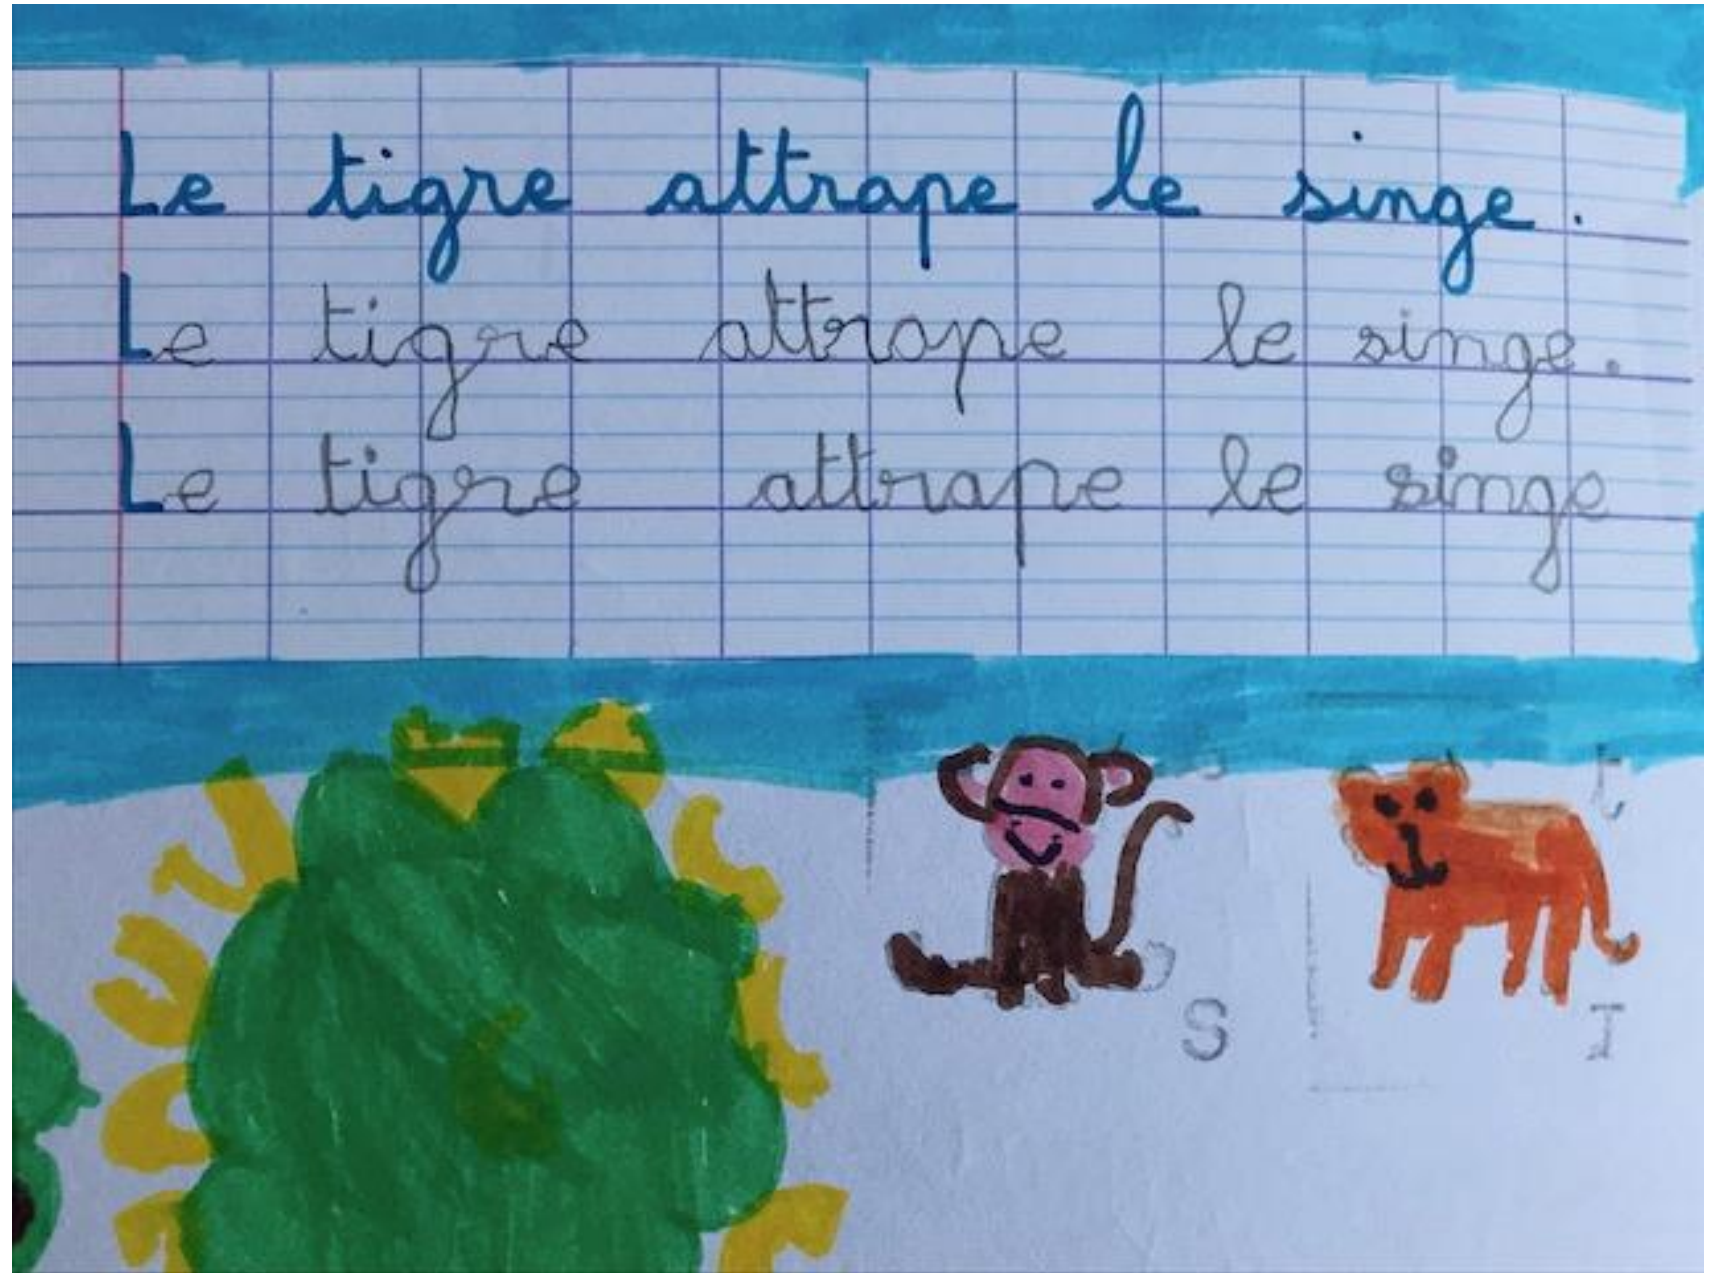 Le tigre attrape le singe.
Le tigre attrape le singe.
Le tigre attrape le singe
t
S
T